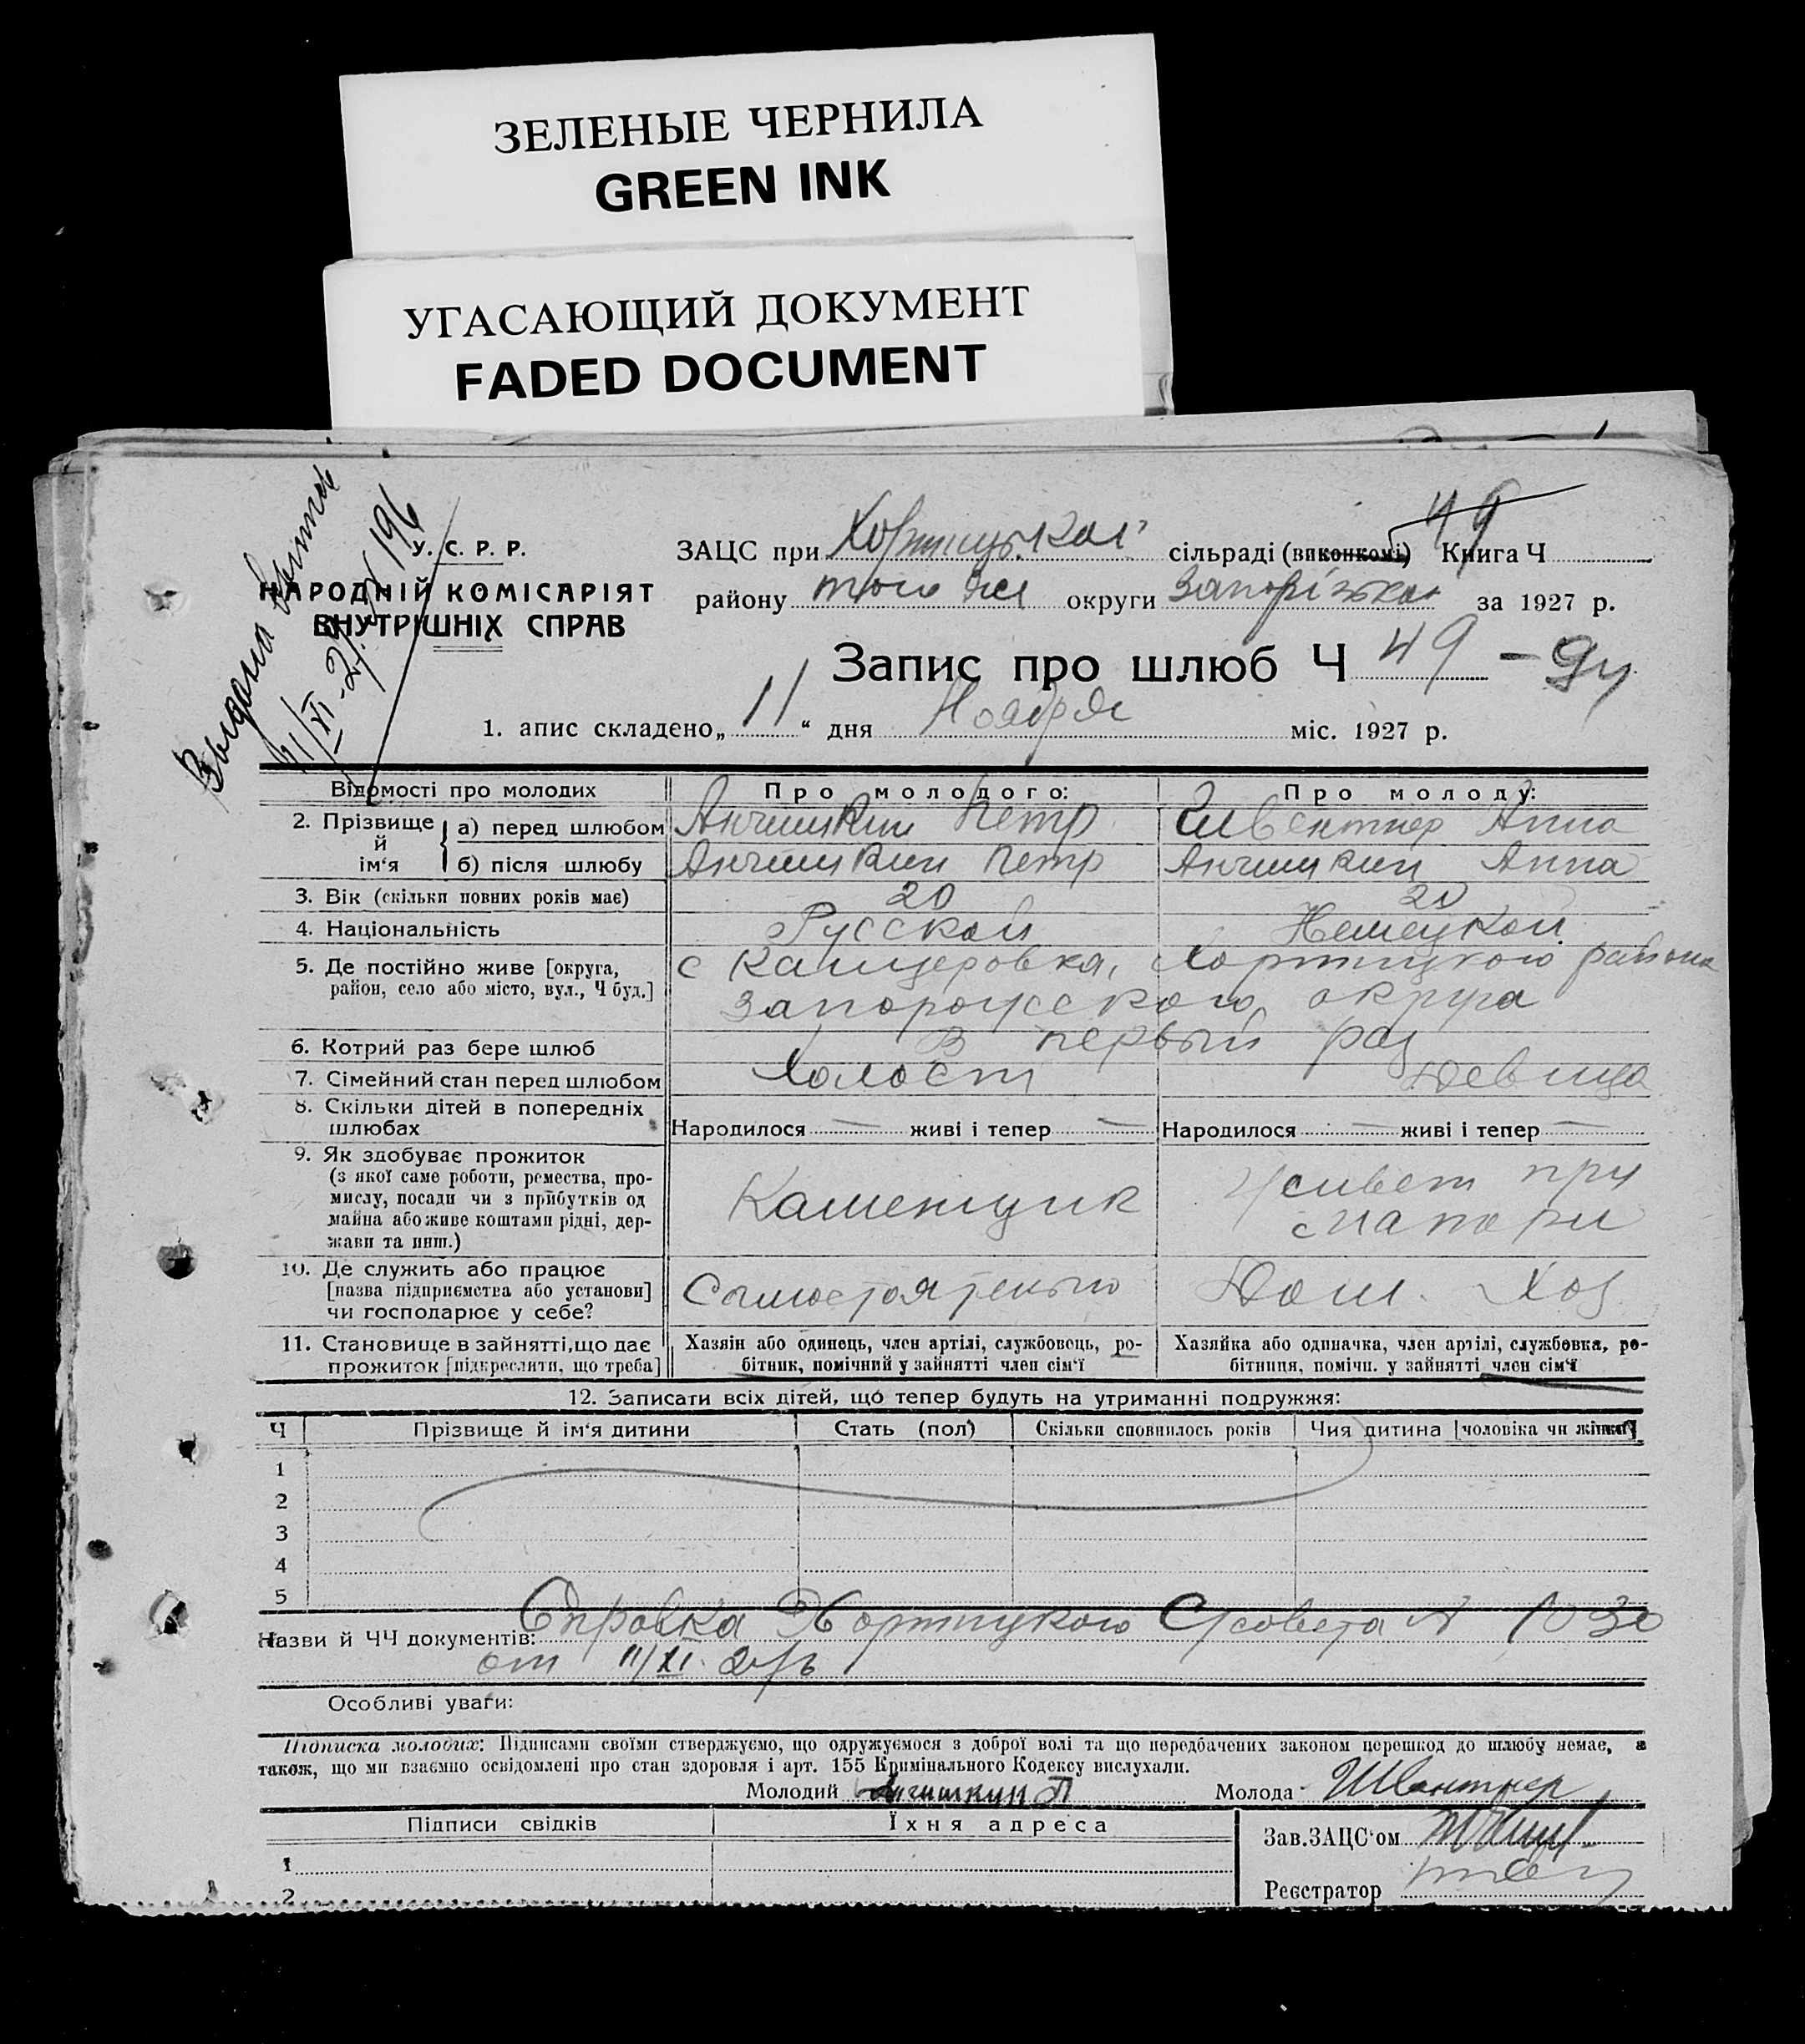 ЗЕЛЕНЫЕ ЧЕРНИЛА
GREEN INK
УГАСАЮЩИЙ ДОКУМЕНТ
FADED DOCUMENT
Выдана
11/XI-27 196
У. С. Р. Р.
НАРОДНІЙ КОМІСАРІЯТ
ВНУТРІШНІХ СПРАВ
49
ЗАЦС при Хортицькой сільраді (виконкомі) Книга Ч
району того же округи Запорізькой за 1927 р.
Запис про шлюб Ч 49 -
1. апис складено „ 11 “ дня Ноября міс. 1927 р.
Відомості про молодих Про молодого: Про молоду:
2. Прізвище й ім‘я а) перед шлюбом Анчишкин Петр Швентнер Анна
б) після шлюбу Анчишкин Петр Анчишкин Анна
3. Вік (скільки повних років має) 20 20
4. Національність Русской Немецкой
5. Де постійно живе [округа, с Канцеровка, Хортицкого района
район, село або місто, вул., Ч буд.] Запорожского округа
6. Котрий раз бере шлюб В первый раз
7. Сімейний стан перед шлюбом Холост Девица
8. Скільки дітей в попередніх
шлюбах Народилося — живі і тепер — Народилося — живі і тепер —
9. Як здобуває прожиток
(з якої саме роботи, ремества, про-
мислу, посади чи з прибутків од
майна або живе коштами рідні, дер-
жави та инш.) Каменщик Живет при
матери
10. Де служить або працює
[назва підприємства або установи]
чи господарює у себе? Самостоятельно Дом. Хоз
11. Становище в зайнятті, що дає Хазяін або одинець, член артілі, службовець, ро- Хазяйка або одиначка, член артілі, службовка, ро-
прожиток [підкреслити, що треба] бітник, помічний у зайнятті член сім‘ї бітниця, помічн. у зайнятті член сім‘ї
12. Записати всіх дітей, що тепер будуть на утриманні подружжя:
Ч Прізвище й ім‘я дитини Стать (пол) Скільки сповнилось років Чия дитина [чоловіка чи жінки]
1
2
3
4
5
Назви й ЧЧ документів: Справка Хортицкого С/совета № 1030
от 11/XI. 27 г
Особливі уваги:
Підписка молодих: Підписами своїми стверджуємо, що одружуємося з доброї волі та що передбачених законом перешкод до шлюбу немає, а
також, що ми взаємно освідомлені про стан здоровля і арт. 155 Кримінального Кодексу вислухали.
Молодий Анчишкин П Молода Швантнер
Підписи свідків Їхня адреса
Зав. ЗАЦС‘ом
1
Реєстратор
2